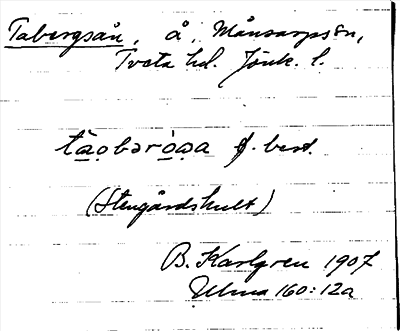 Tabergsån, å, Månsarpssn,
Tveta hd. Jönk. l.
tàobəròạa f. best.
(Stengårdshult)
B. Karlgren 1907
Ulma 160:12a